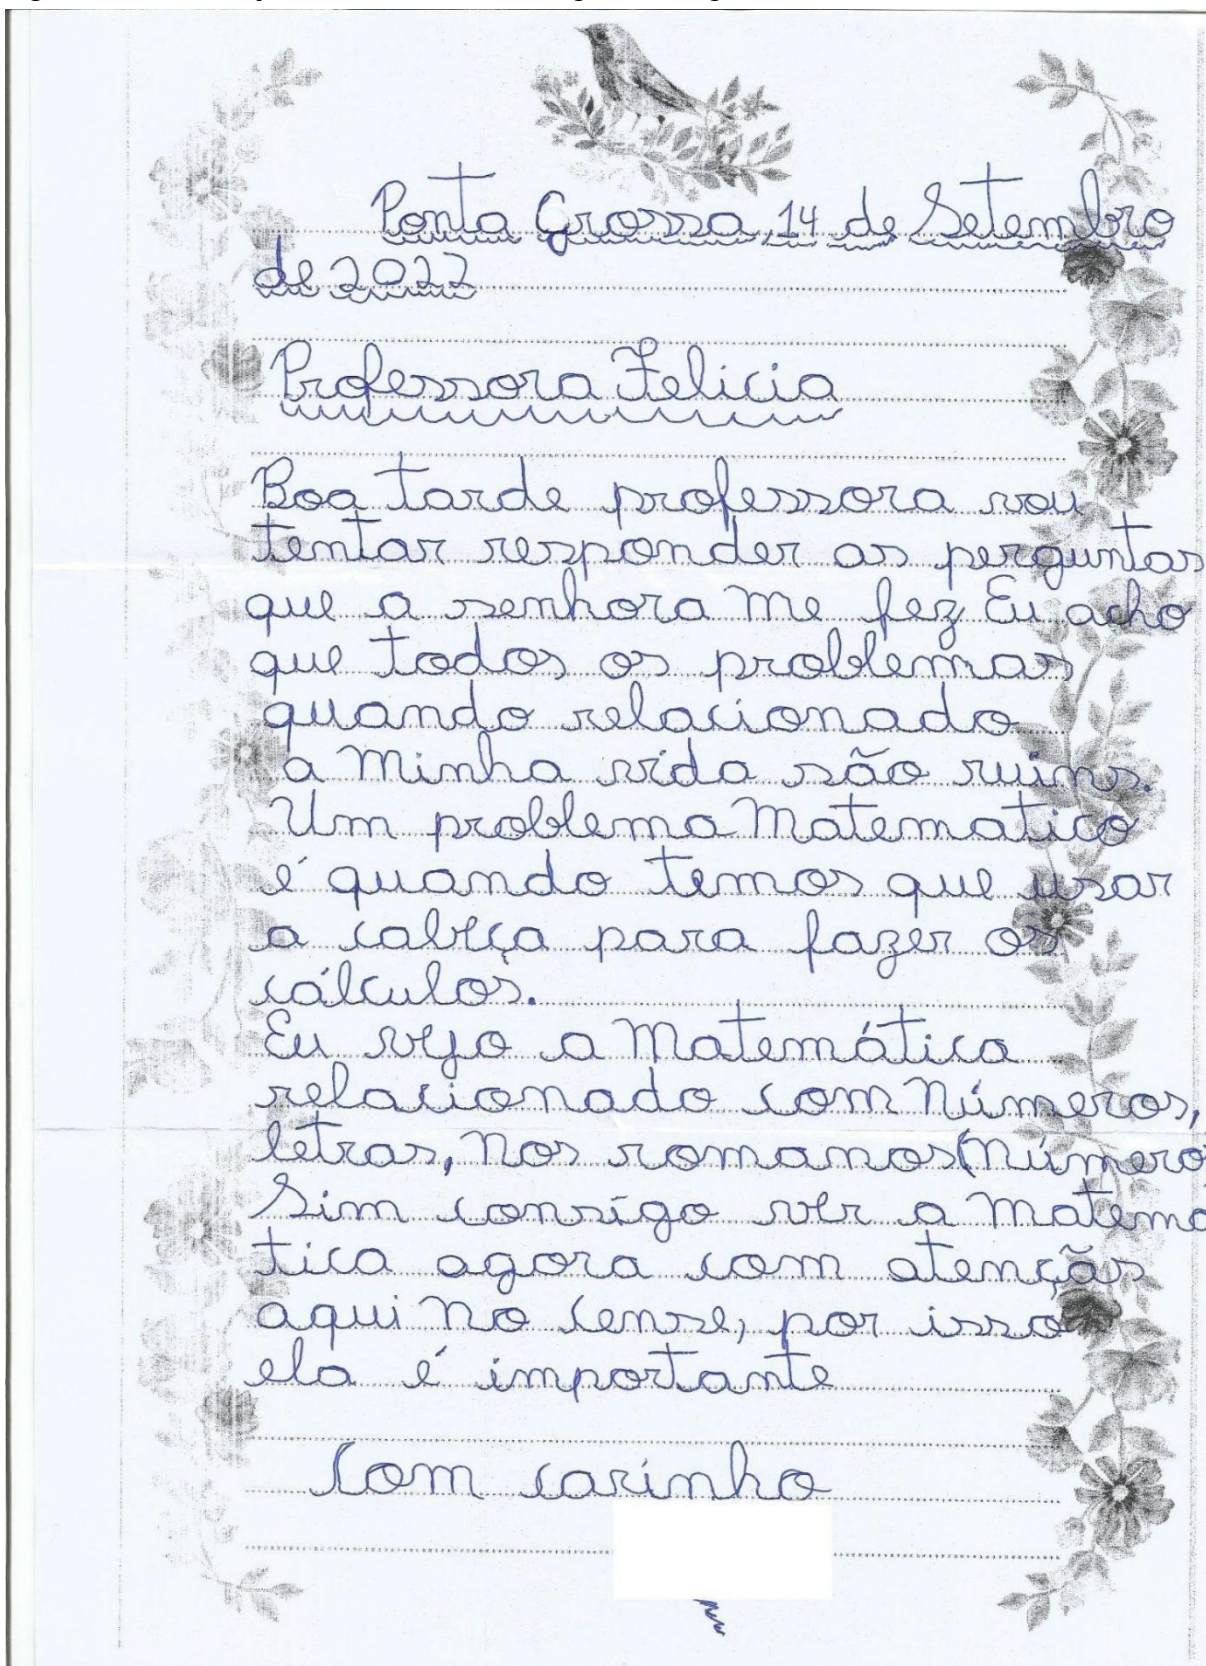 Ponta Grossa, 14 de Setembro
de 2022
Professora Felicia
Boa tarde professora vou
tentar responder as perguntas
que a senhora me fez Eu acho
que todos os problemas
quando relacionado
a minha vida são ruins.
Um problema matematico
é quando temos que usar
a cabeça para fazer os
cálculos.
Eu vejo a matemática
relacionado com números,
letras, nos romanos (número
Sim consigo ver a matema
tica agora com atenção
aqui no cense, por isso
ela é importante
Com carinho